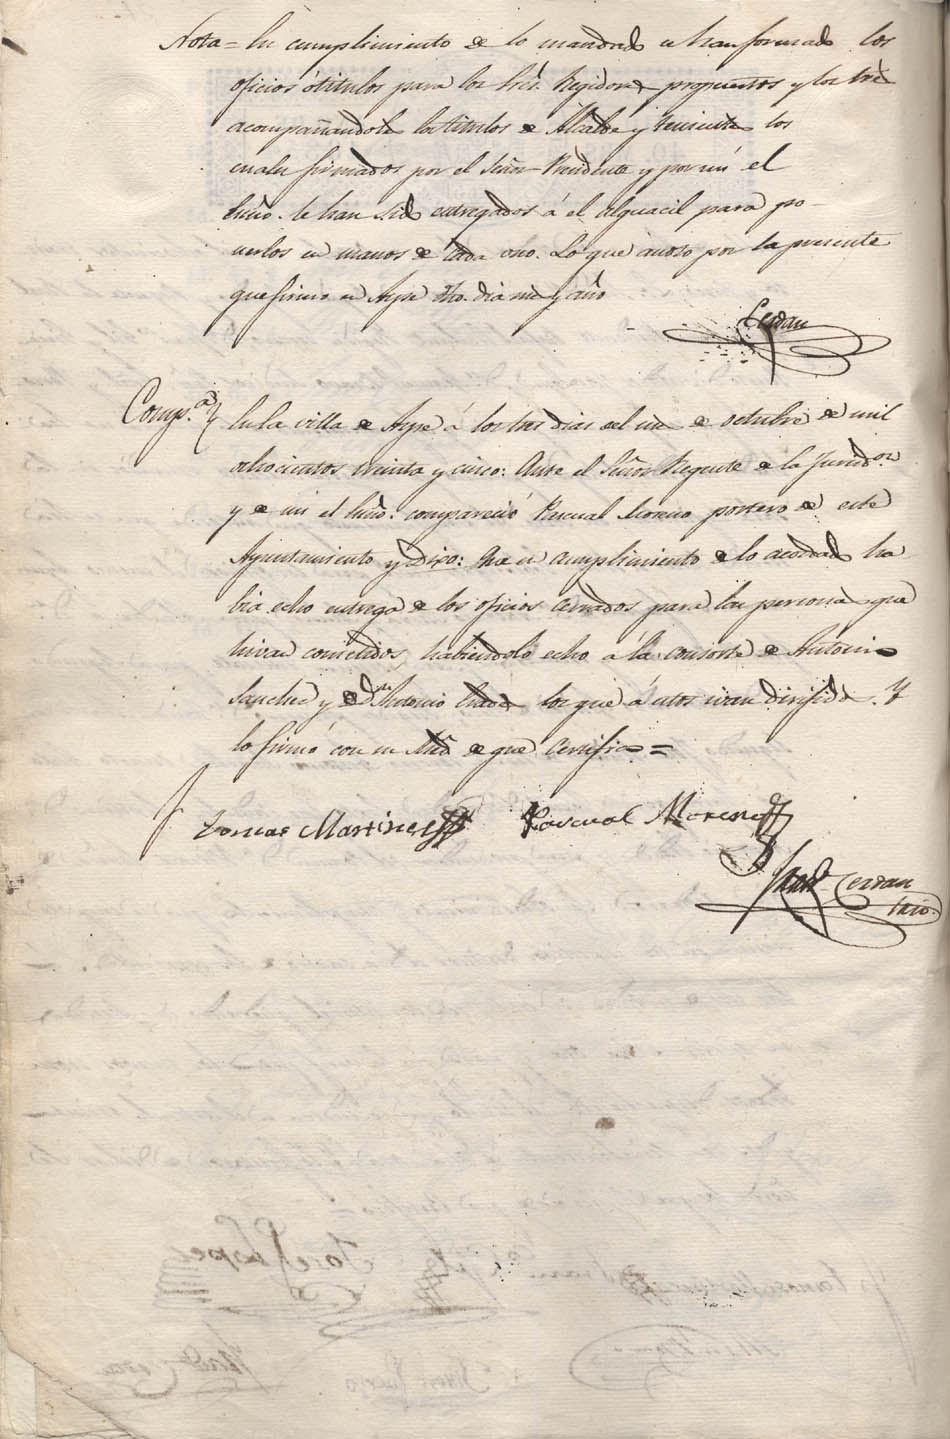 Nota = En cumplimiento de lo mandado se han formado los
oficios ó titulos para los tres Regidores propuestos y los
acompañandole los titulos de Alcalde y Teniente los
cuales firmados por el Señor Presidente y por mi el
Srio. le han sido entregados á el alguacil para po-
nerlos en manos de cada uno. Lo que anoto por la presente
que firmo en Aspe dho. dia mes y año
Cerdan
Comp.a En la villa de Aspe á los tres dias del mes de octubre de mil
ochocientos treinta y cinco: Ante el Señor Regente de la Jurisd.on
y de mi el Srio: comparecio Pascual Moreno portero de este
Ayuntamiento y Dixo: Que en cumplimiento de lo acordado ha-
bia echo entrega de los oficios cerrados para las personas que
hivan cometidos, habiendolo echo á la consorte de Antonio
Sanchez y de Dn. Antonio los que á estos ivan dirijidos. Y
lo firmó con su de que certifico =
Tomas Martinez Pascual Moreno
Cerdan
Srio.